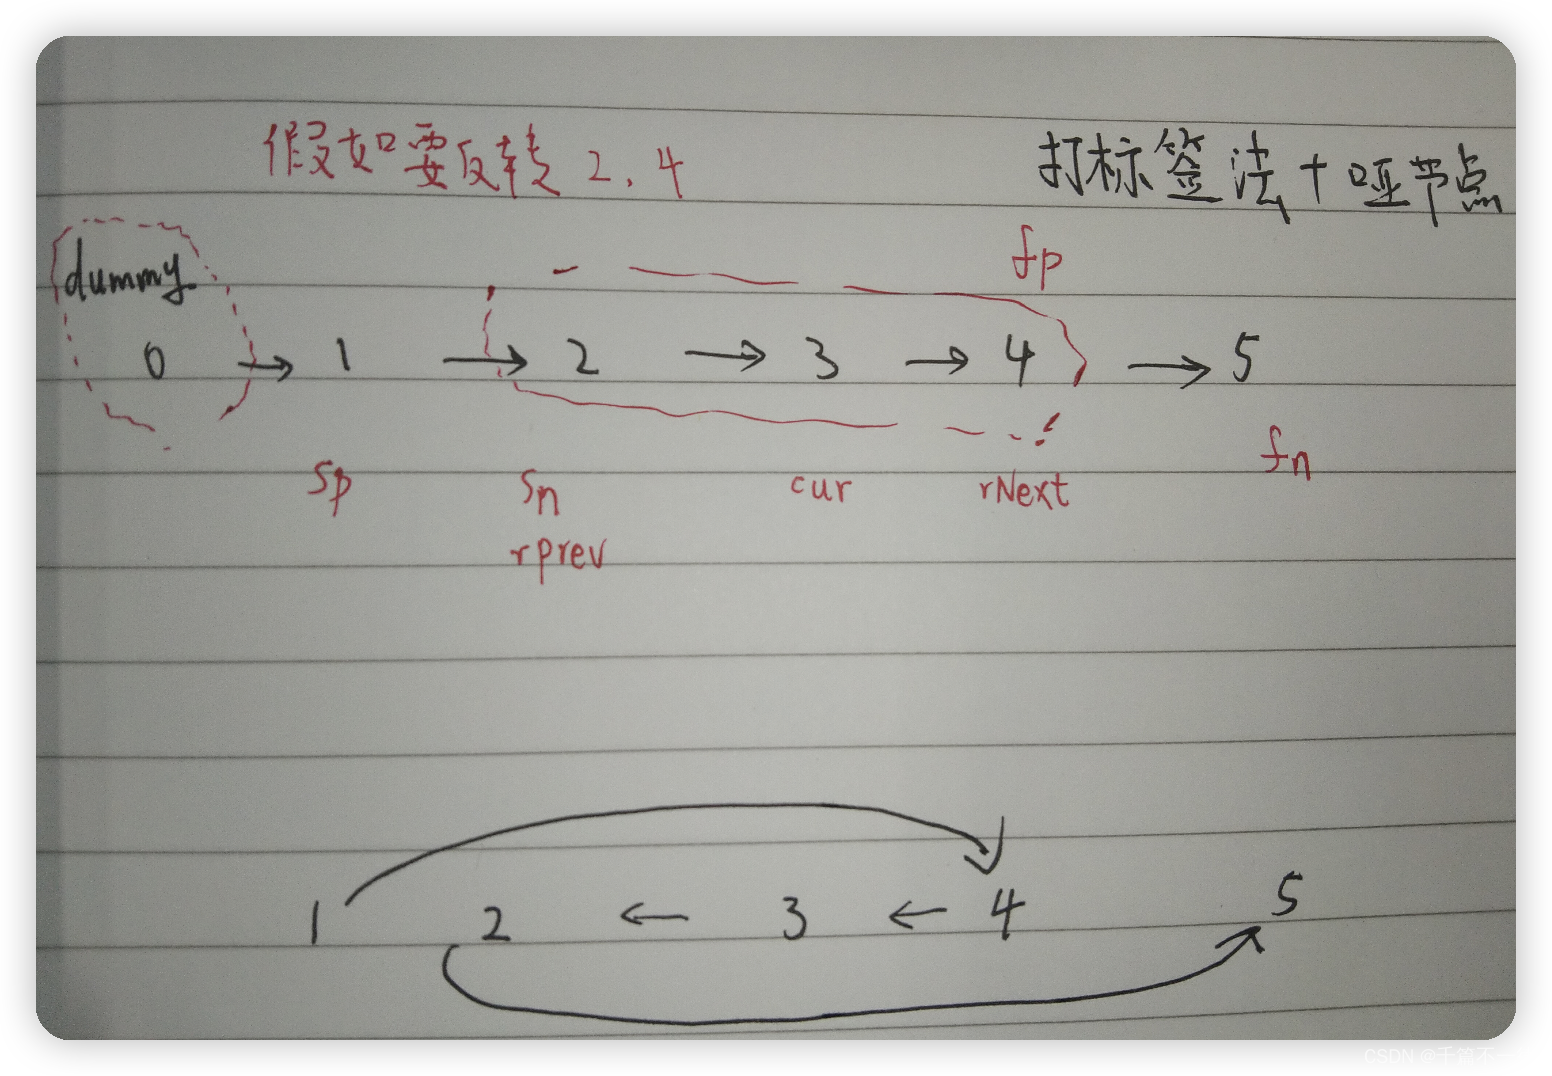 假如要反转 2, 4
打标签法 + 哑节点
dummy
fp
0 → 1 → 2 → 3 → 4 → 5
fn
sp sn cur rNext
rprev
1 2 ← 3 ← 4 5
CSDN @千篇不一